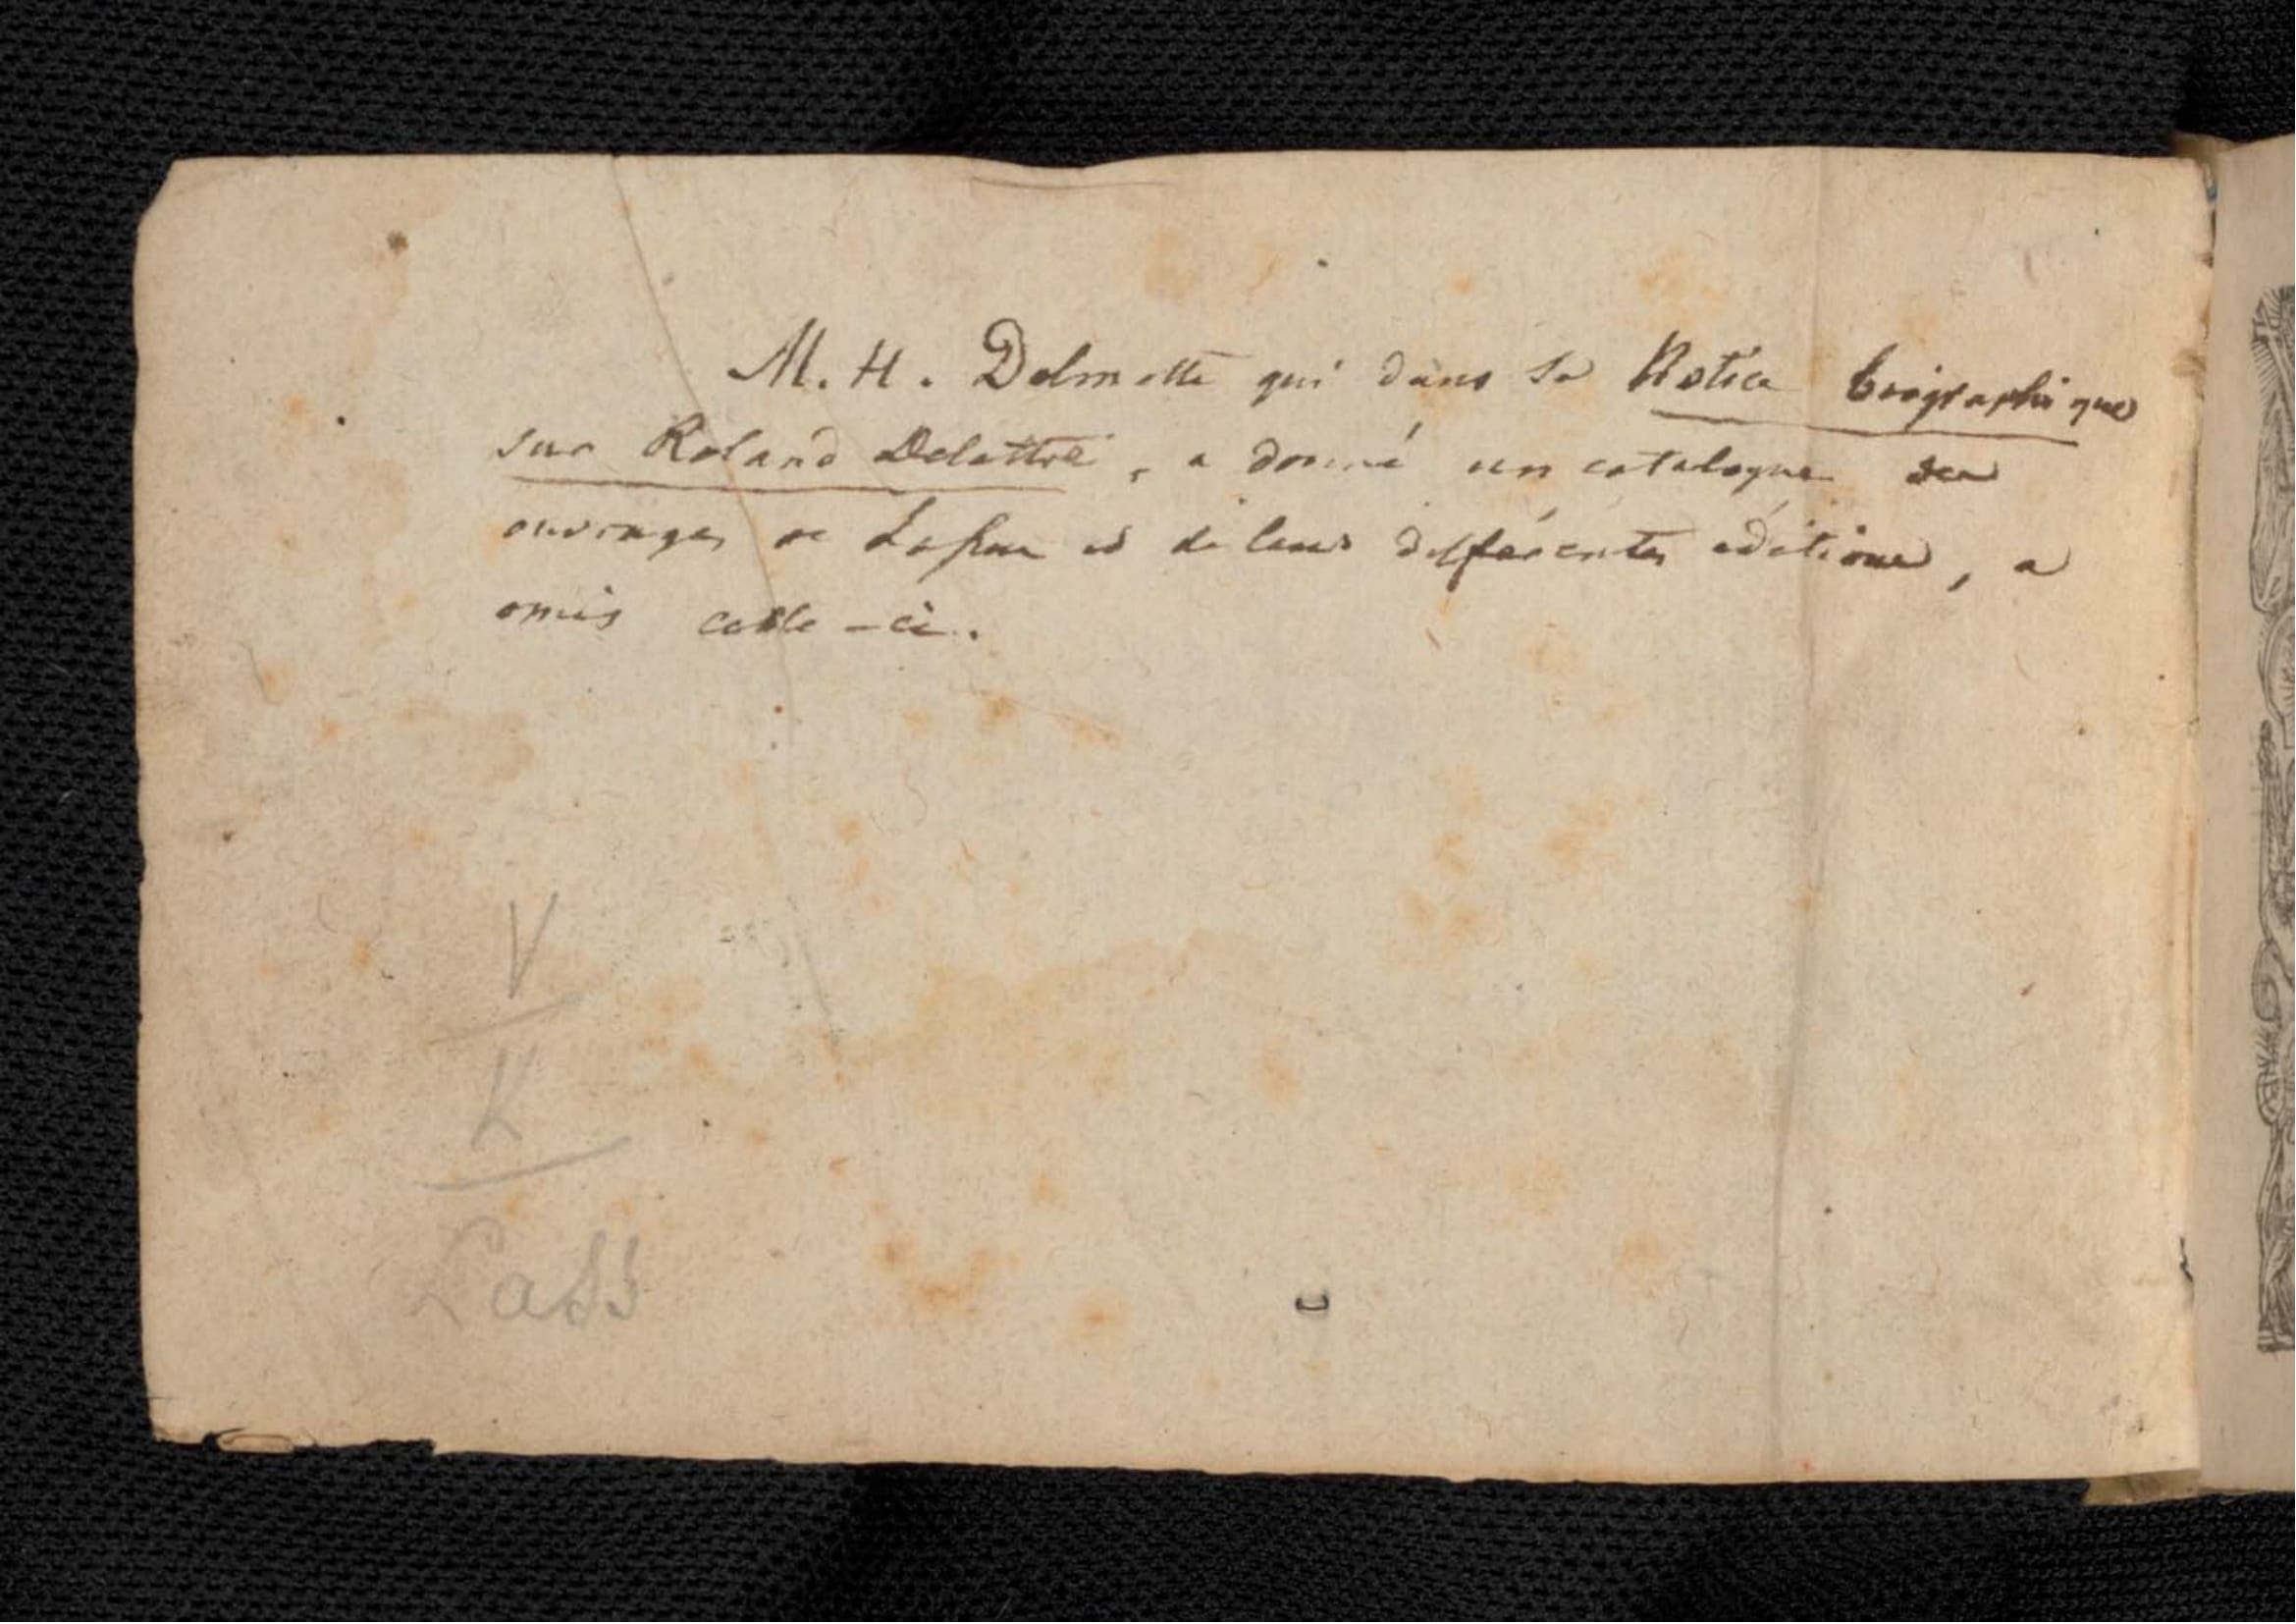 M. H. Delmotte qui dans sa Notice biographique
sur Roland Delattre, a donné un catalogue des
ouvrages de Lassus et de leurs différentes éditions, a
omis celle-ci.
V
K
Lass